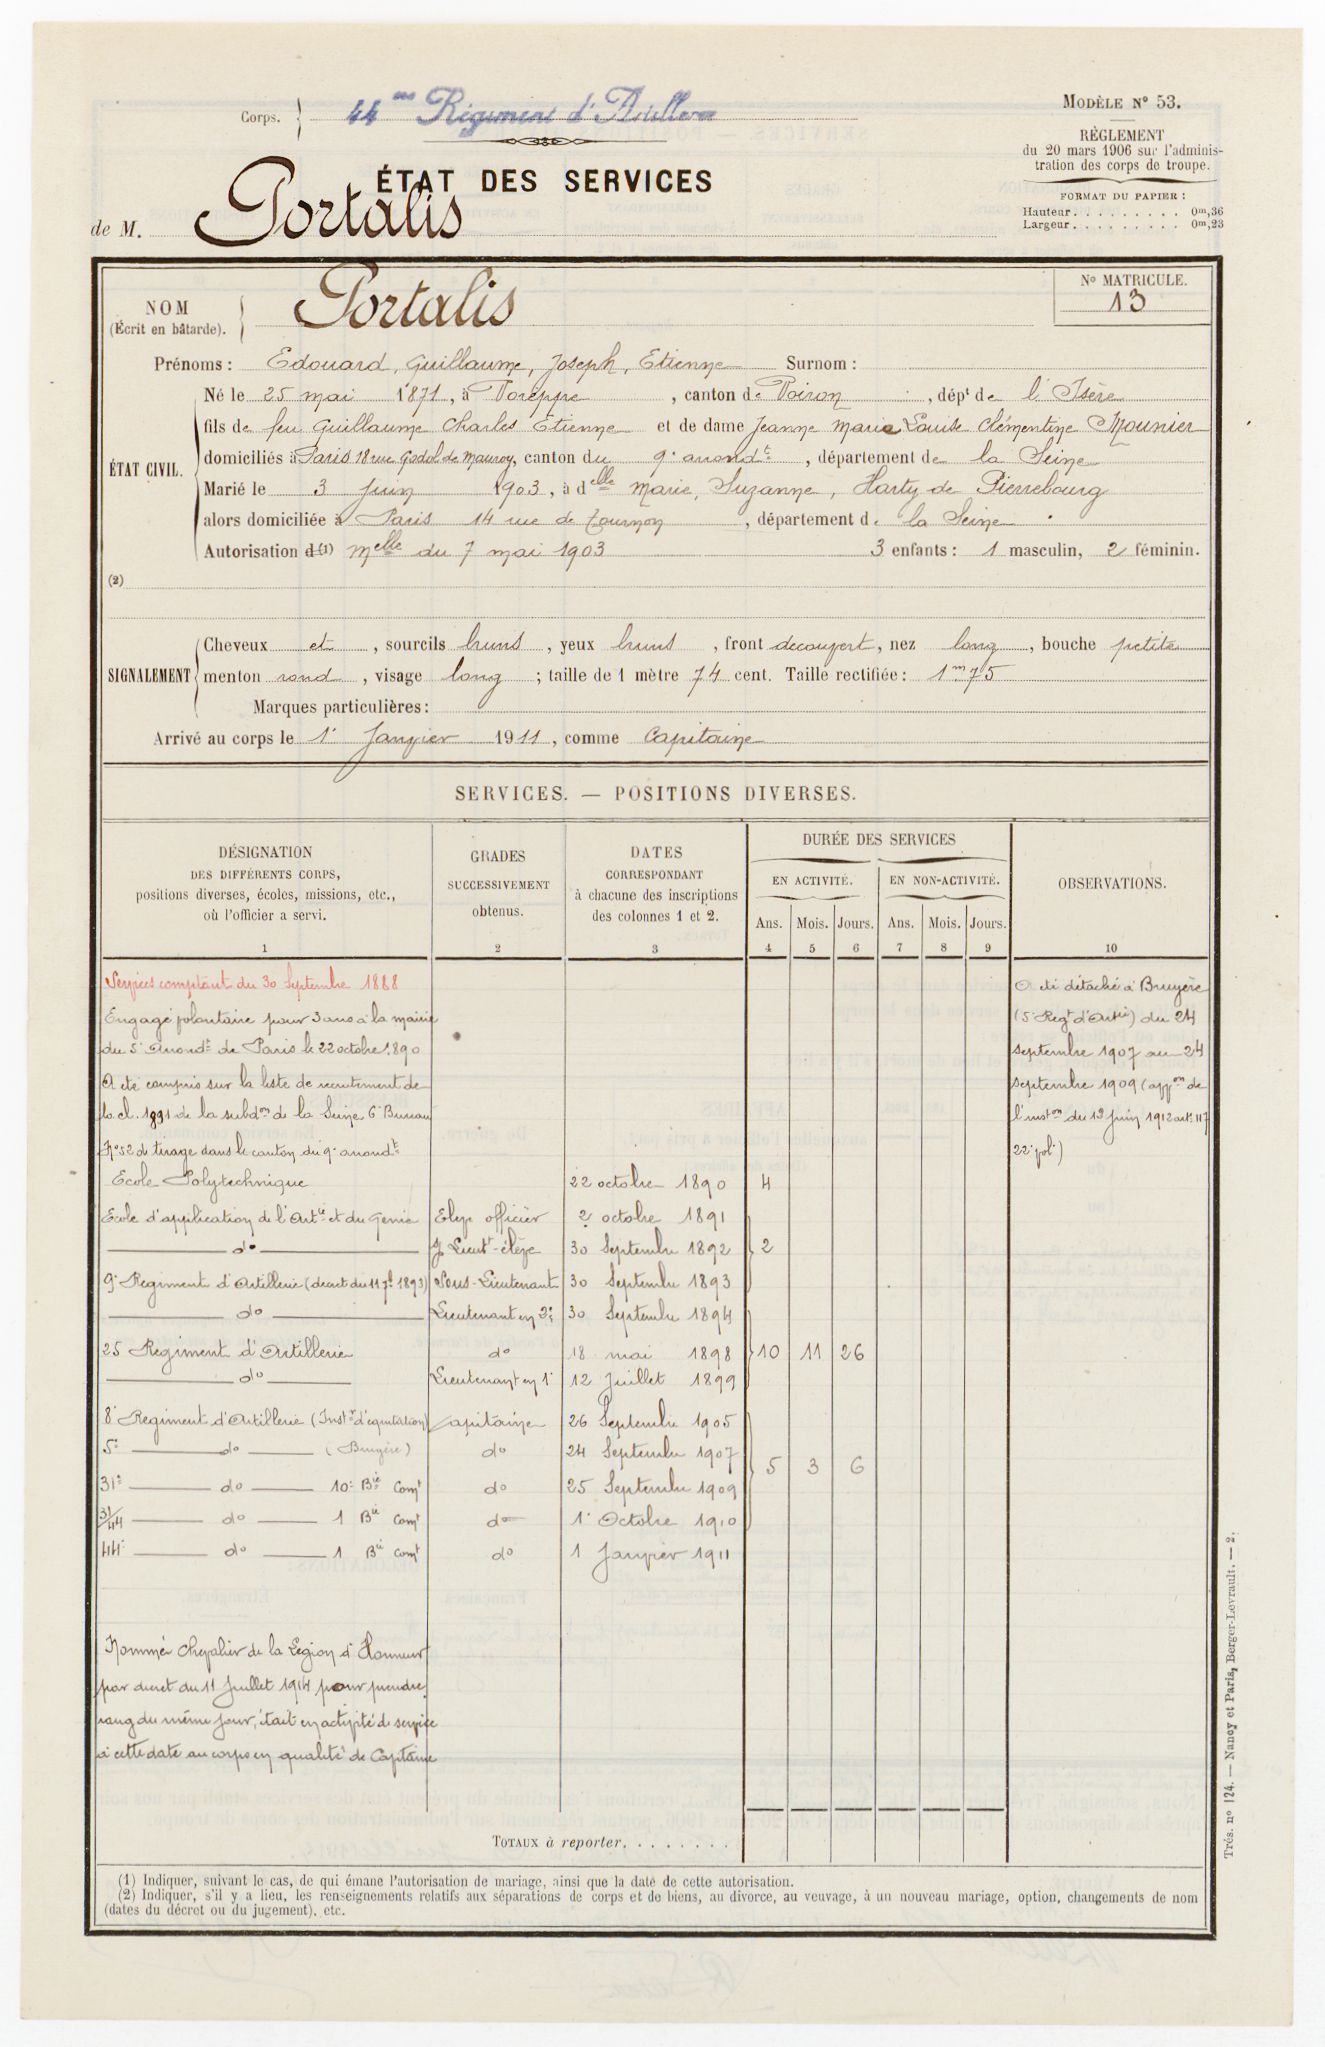 Corps. 44me Régiment d'Artillerie
MODÈLE N° 53.
RÈGLEMENT
du 20 mars 1906 sur l'adminis-
tration des corps de troupe.
FORMAT DU PAPIER :
Hauteur . . . . . . . . . 0m,36
Largeur . . . . . . . . . 0m,23
ÉTAT DES SERVICES
de M. Portalis
N° MATRICULE.
13
NOM
(Écrit en bâtarde).
Portalis
Prénoms : Edouard, Guillaume, Joseph, Etienne Surnom :
ÉTAT CIVIL.
Né le 25 mai 1871, à Voreppe, canton de Voiron, dépt de l'Isère
fils de feu Guillaume Charles Etienne et de dame Jeanne Marie Louise Clémentine Mounier
domiciliés à Paris 18 rue Godot de Mauroy, canton du 9e arrondt, département de la Seine
Marié le 3 Juin 1903, à delle Marie, Suzanne, Harty de Pierrebourg
alors domiciliée à Paris 14 rue de Tournon, département de la Seine
Autorisation d(1) Melle du 7 mai 1903 3 enfants : 1 masculin, 2 féminin.
(2)
SIGNALEMENT
Cheveux et, sourcils bruns, yeux bruns, front découvert, nez long, bouche petite
menton rond, visage long ; taille de 1 mètre 74 cent. Taille rectifiée : 1m75
Marques particulières :
Arrivé au corps le 1r Janvier 1911, comme Capitaine
SERVICES. — POSITIONS DIVERSES.
DÉSIGNATION
DES DIFFÉRENTS CORPS,
positions diverses, écoles, missions, etc.,
où l'officier a servi.
1
GRADES
SUCCESSIVEMENT
obtenus.
2
DATES
CORRESPONDANT
à chacune des inscriptions
des colonnes 1 et 2.
3
DURÉE DES SERVICES
EN ACTIVITÉ. EN NON-ACTIVITÉ.
Ans. Mois. Jours. Ans. Mois. Jours.
4 5 6 7 8 9
OBSERVATIONS.
10
Services comptant du 30 Septembre 1888
Engagé volontaire pour 3 ans à la mairie
du 5e Arrondt de Paris le 22 octobre 1890
A été compris sur la liste de recrutement de
la cl. 1891 de la subdon de la Seine 6e Bureau
N° 52 de tirage dans le canton du 9e arrondt
Ecole Polytechnique 22 octobre 1890 4
Ecole d'application de l'Artie et du Génie Elève officier 2 octobre 1891
do Lieutt-élève 30 Septembre 1892 2
9e Régiment d'Artillerie (décret du 11 7bre 1893) Sous-Lieutenant 30 Septembre 1893
do Lieutenant en 2e 30 Septembre 1894
25 Régiment d'Artillerie do 18 mai 1898 10 11 26
do Lieutenant en 1r 12 Juillet 1899
8e Régiment d'Artillerie (Instr d'équitation) Capitaine 26 Septembre 1905
5e do (Bruyère) do 24 Septembre 1907 5 3 6
31e do 10e Bie Comt do 25 Septembre 1909
31/44 do 1 Bie Comt do 1r Octobre 1910
44e do 1 Bie Comt do 1 Janvier 1911
A été détaché à Bruyère
(5e Régt d'Artie) du 24
septembre 1907 au 24
septembre 1909 (appon de
l'inston du 19 Juin 1912 art. 117
22e vol.)
Nommé Chevalier de la Légion d'Honneur
par décret du 11 Juillet 1914 pour prendre
rang du même jour, était en activité de service
à cette date au corps en qualité de Capitaine
TOTAUX à reporter . . . . . . .
(1) Indiquer, suivant le cas, de qui émane l'autorisation de mariage, ainsi que la date de cette autorisation.
(2) Indiquer, s'il y a lieu, les renseignements relatifs aux séparations de corps et de biens, au divorce, au veuvage, à un nouveau mariage, option, changements de nom
(dates du décret ou du jugement), etc.
Trés. n° 124. — Nancy et Paris, Berger-Levrault. — 2.